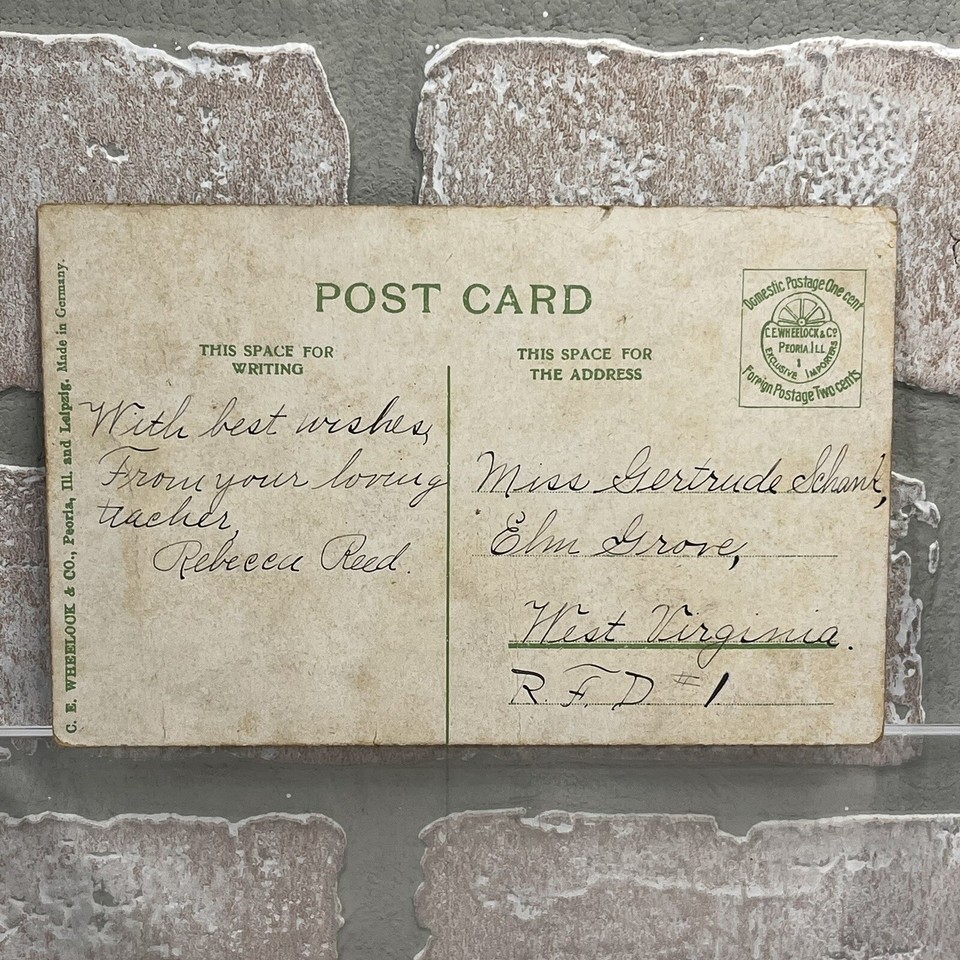 C. E. WHEELOCK & CO., Peoria, Ill. and Leipzig. Made in Germany.
POST CARD
THIS SPACE FOR
WRITING
THIS SPACE FOR
THE ADDRESS
Domestic Postage One cent
C.E.WHEELOCK & Co
PEORIA.ILL
EXCLUSIVE IMPORTERS
Foreign Postage Two cents
With best wishes,
From your loving
teacher,
Rebecca Reed.
Miss Gertrude Schank,
Elm Grove,
West Virginia.
R. F. D #1